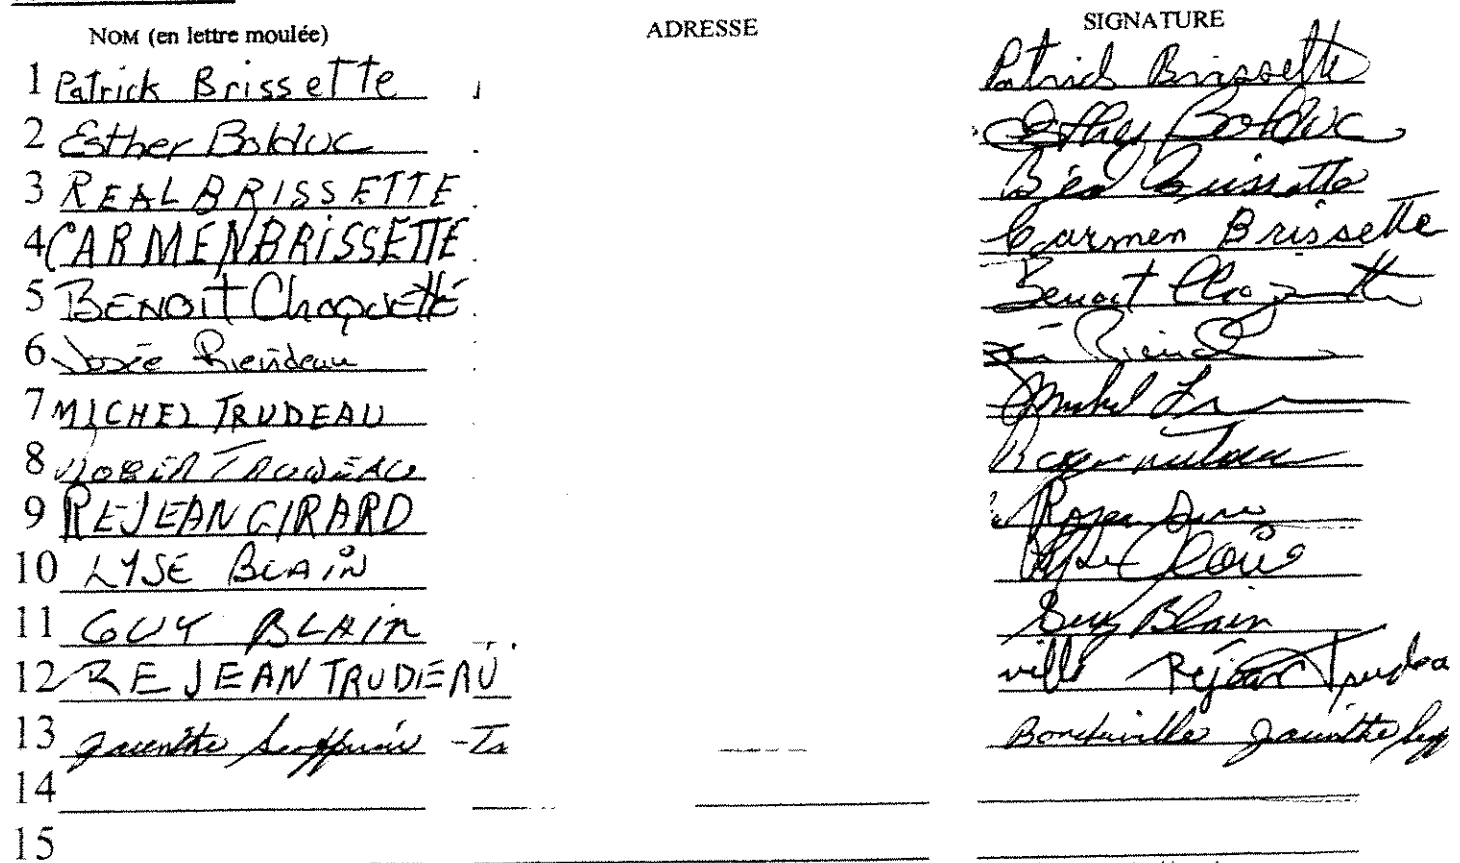 NOM (en lettre moulée) ADRESSE SIGNATURE
1 Patrick Brissette Patrick Brissette
2 Esther Bolduc Esther Bolduc
3 REAL BRISSETTE Réal Brissette
4 CARMEN BRISSETTE Carmen Brissette
5 BENOIT Choquette Benoit Choquette
6 Josée Riendeau
7 MICHEL TRUDEAU Michel
8 TRUDEAU
9 REJEAN GIRARD
10 LYSE BLAIN Lyse Blain
11 GUY BLAIN Guy Blain
12 REJEAN TRUDEAU ville Réjean Trudea
13 Jacinthe Bonsecours
14
15